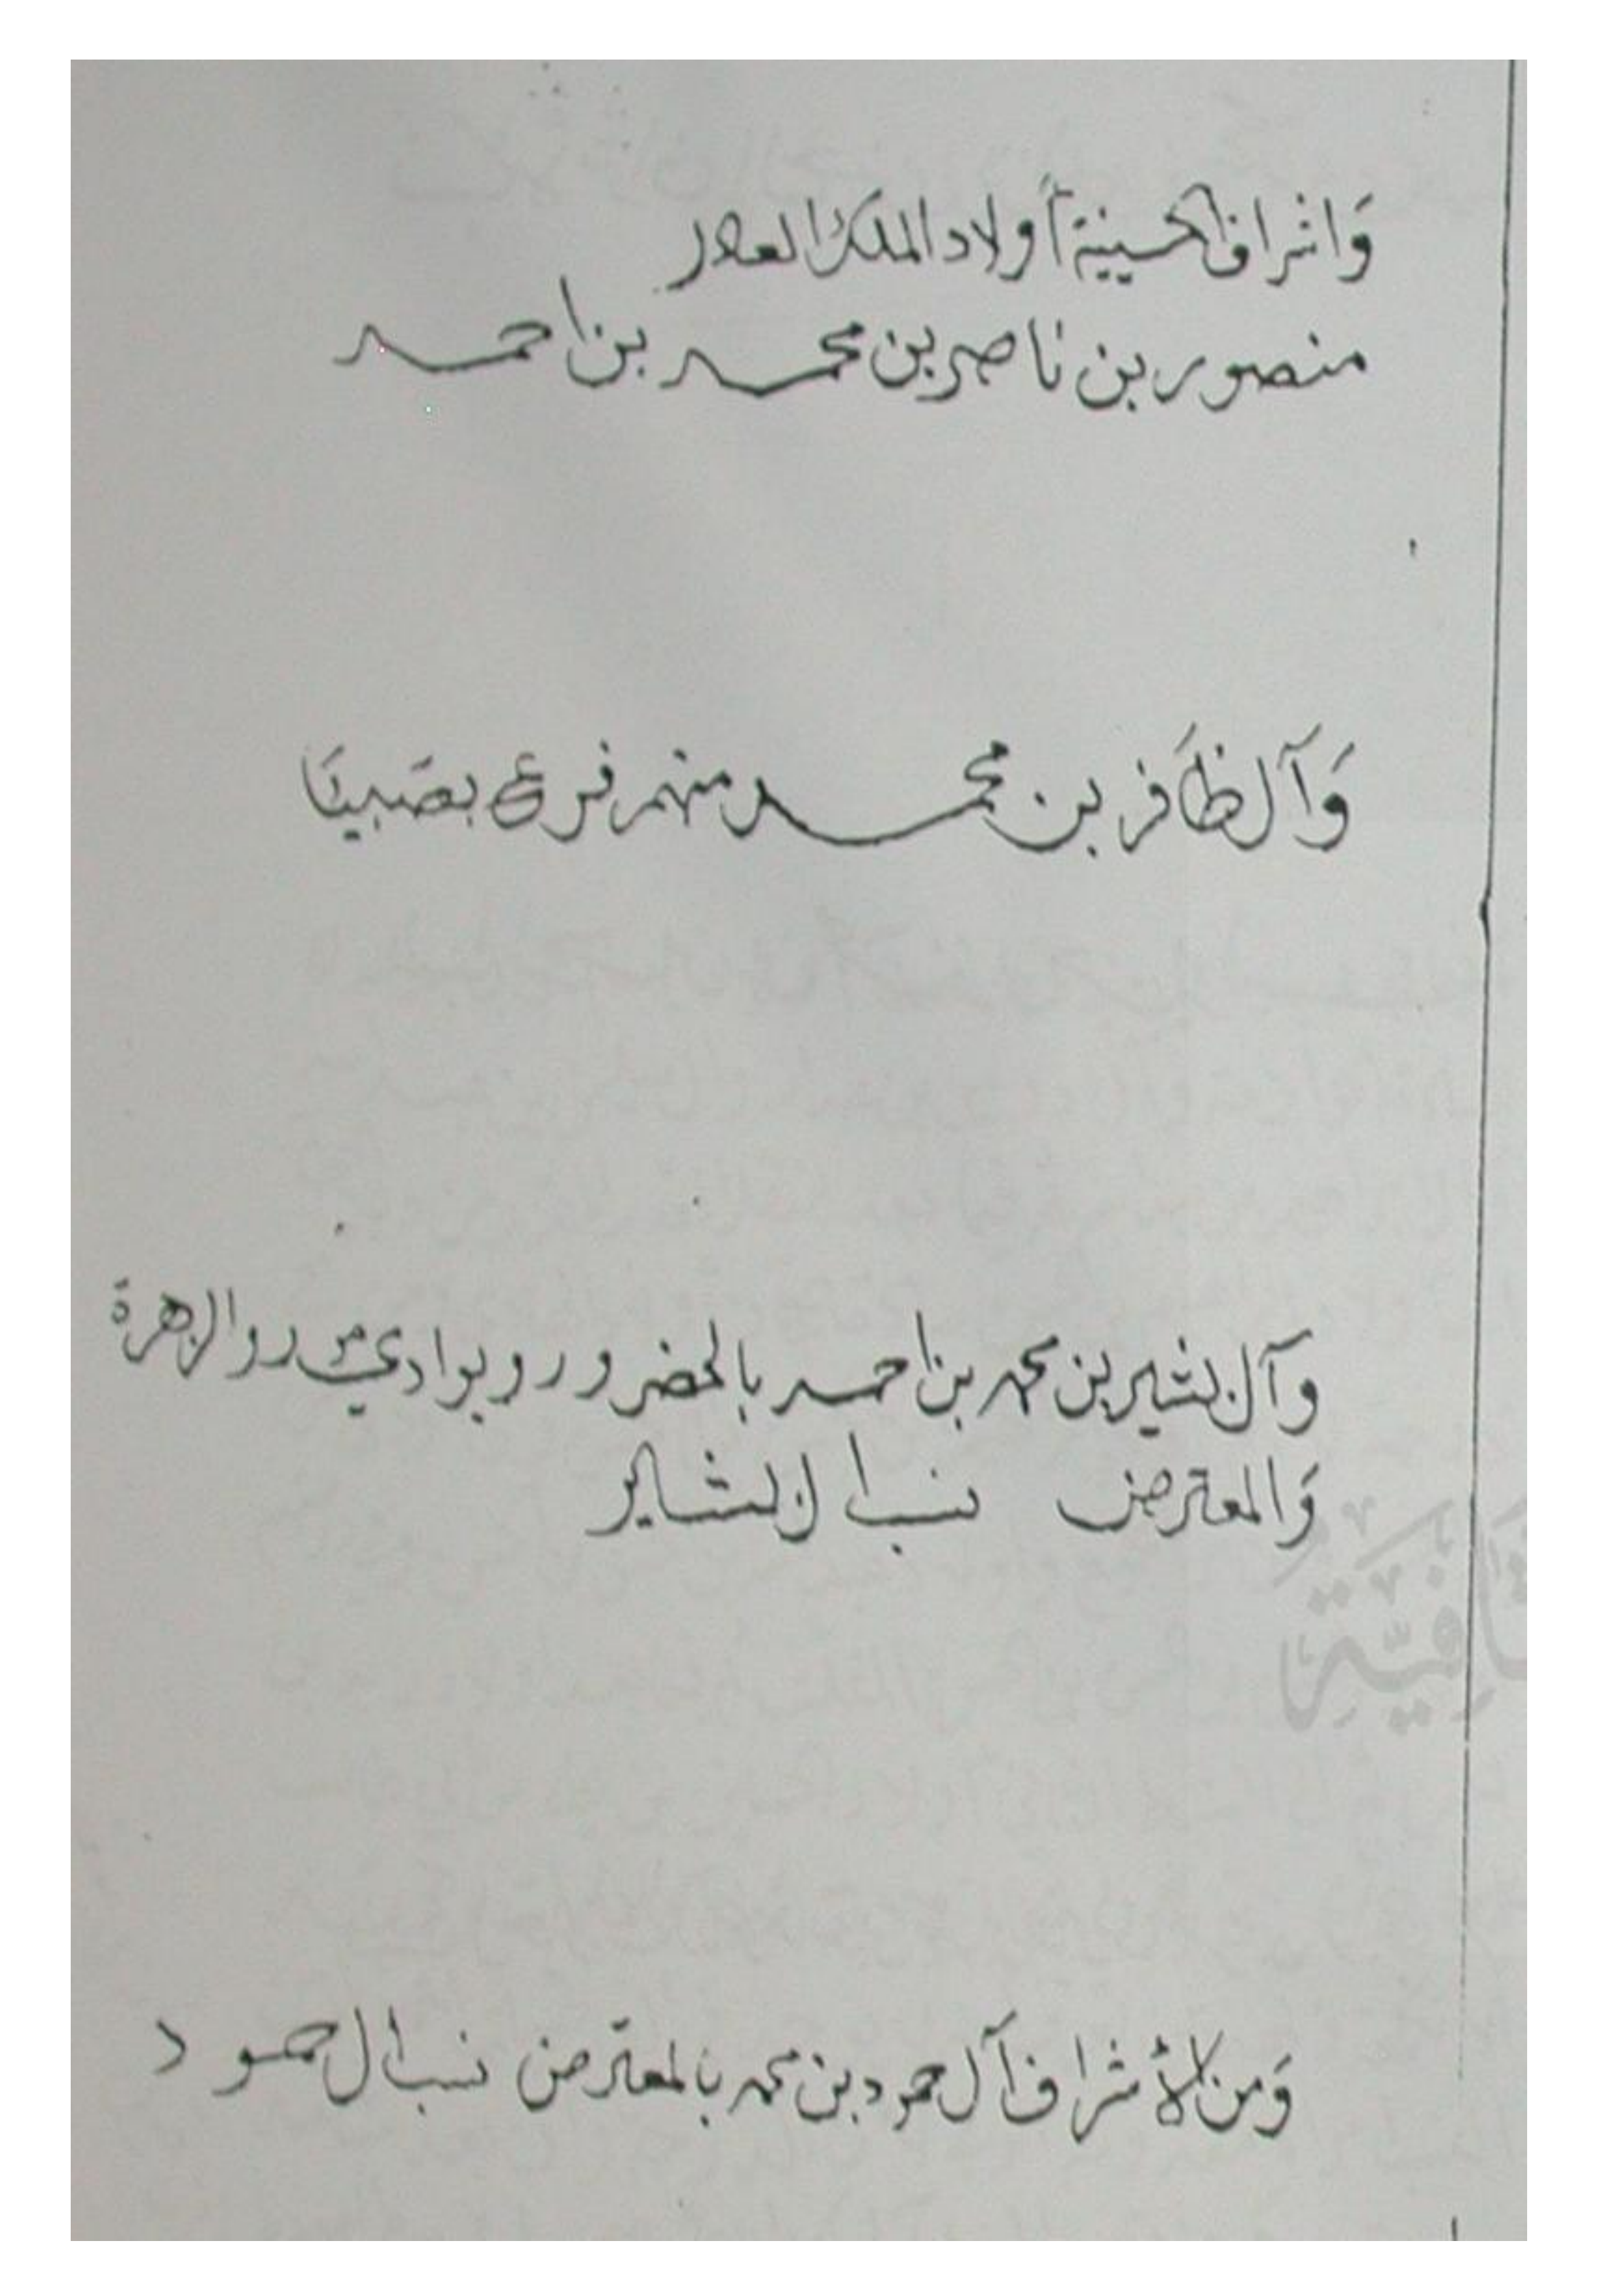 وَاشراف الحسينية أولاد الملك العادل
منصور بن ناصر بن محمد بن احمد
وَآل ظَافر بن محمد منهم فرع بصَبيَا
وآل بشير بن محمد بن احمد بالخضرور وبوادي والزهرة
وَالمعترض نسب ال بشاير
وَمن الأشراف آل حمود بن محمد بالمعترض نسب ال حمود